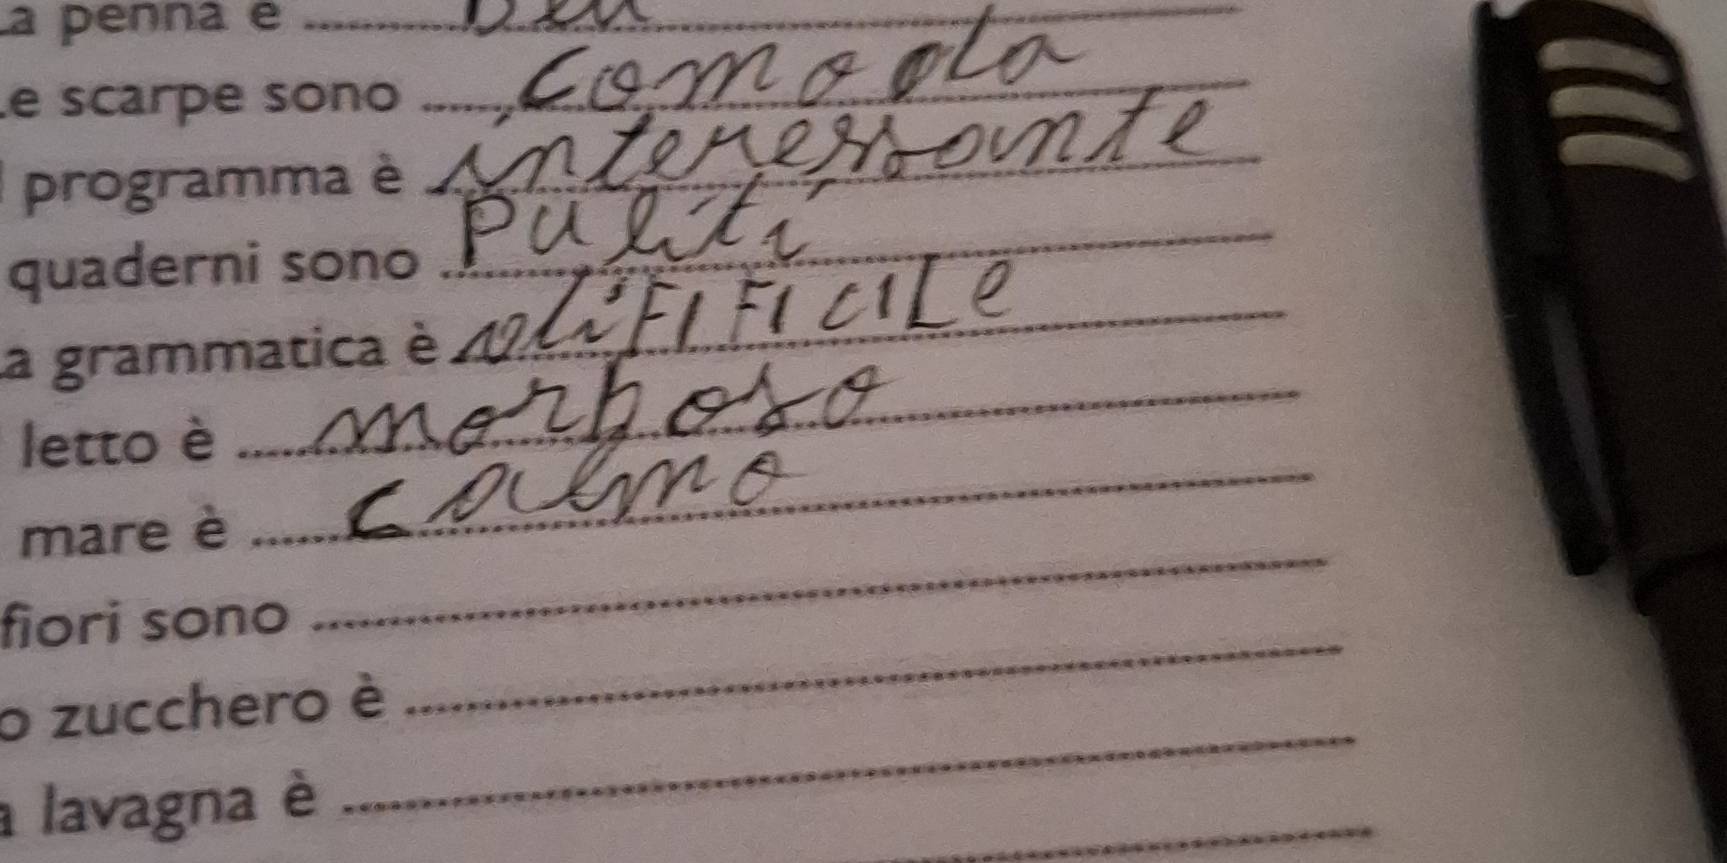 a penna è
e scarpe sono comoda
programma è interessante
quaderni sono puliti
a grammatica è difificile
letto è morboso
mare è calmo
fiori sono
o zucchero è
a lavagna è